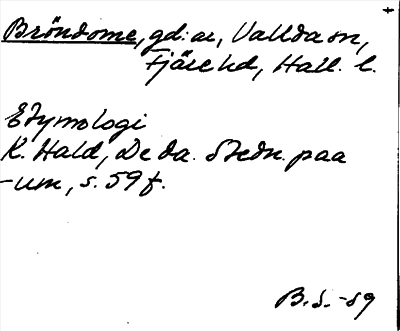 Bröndome, gd: ar, Vallda sn,
Fjäre hd, Hall. l.
Etymologi
K. Hald, De da. Stedn. paa
-um, s. 59 f.
B. S. -59